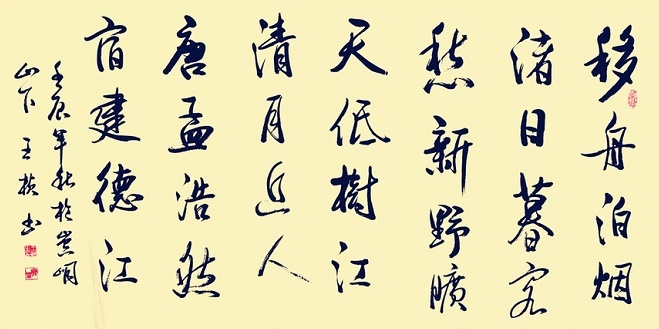 移舟泊烟
渚日暮客
愁新野曠
天低樹江
清月近人
唐孟浩然
宿建德江
壬辰年秋於
山下王书